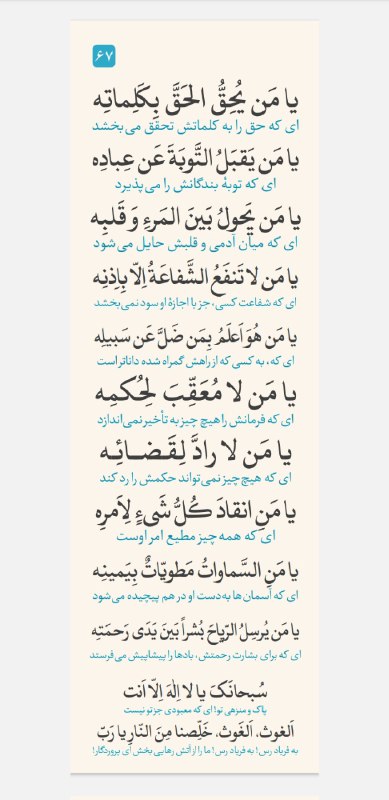 ۶۷
یا مَن یُحِقُّ الحَقَّ بِکَلِماتِه
ای که حق را به کلماتش تحقق می‌بخشد
یا مَن یَقبَلُ التَّوبَةَ عَن عِبادِه
ای که توبهٔ بندگانش را می‌پذیرد
یا مَن یَحولُ بَینَ المَرءِ وَ قَلبِه
ای که میان آدمی و قلبش حایل می‌شود
یا مَن لا تَنفَعُ الشَّفاعَةُ اِلّا بِاِذنِه
ای که شفاعت کسی، جز با اجازهٔ او سود نمی‌بخشد
یا مَن هُوَ اَعلَمُ بِمَن ضَلَّ عَن سَبیلِه
ای که، به کسی که از راهش گمراه شده داناتر است
یا مَن لا مُعَقِّبَ لِحُکمِه
ای که فرمانش را هیچ چیز به تأخیر نمی‌اندازد
یا مَن لا رادَّ لِقَضائِه
ای که هیچ چیز نمی‌تواند حکمش را رد کند
یا مَنِ انقادَ کُلُّ شَیءٍ لِاَمرِه
ای که همه چیز مطیع امر اوست
یا مَنِ السَّماواتُ مَطوِیّاتٌ بِیَمینِه
ای که آسمان‌ها به دست او در هم پیچیده می‌شود
یا مَن یُرسِلُ الرّیاحَ بُشراً بَینَ یَدَی رَحمَتِه
ای که برای بشارت رحمتش، بادها را پیشاپیش می‌فرستد
سُبحانَکَ یا لا اِلٰهَ اِلّا اَنت
پاک و منزهی تو! ای که معبودی جز تو نیست
اَلغوث، اَلغَوث، خَلِّصنا مِنَ النّارِ یا رَبّ
به فریاد رس! به فریاد رس! ما را از آتش رهایی بخش ای پروردگار!